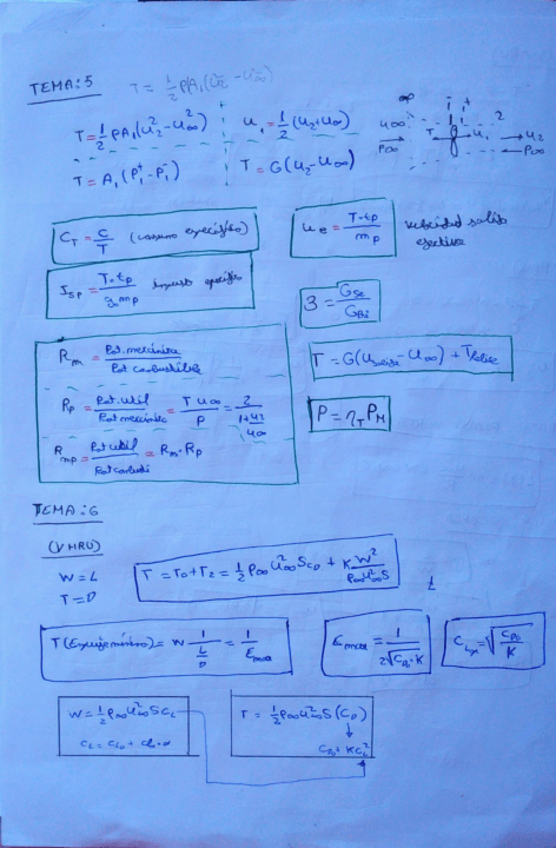 TEMA: 5 T = ½ρA₁(u₂² - u∞²)
T = ½ρA₁(u₂² - u∞²) u₁ = ½(u₂ + u∞)
T = A₁(P₁⁺ - P₁⁻) T = G(u₂ - u∞)
∞ 1 - + 2
u∞ T u₁ u₂
P∞ P∞
C_T = c/T (consumo específico) u_e = T·t_p/m_p velocidad salida
efectiva
I_sp = T·t_p/g₀m_p impulso específico
β = G_se/G_Bi
R_m = Pot. mecánica/Pot combustible
T = G(u_salida - u∞) + T_hélice
R_p = Pot. útil/Pot mecánica = T u∞/P = 2/(1 + u₂/u∞)
P = η_T P_M
R_mp = Pot útil/Pot comb = R_m · R_p
TEMA: 6
(VHRU)
W = L
T = D
T = T₀ + T₂ = ½ρ∞u∞²SC_D₀ + K W²/(½ρ∞u∞²S)
T (Empuje mínimo) = W 1/(L/D) = 1/E_max
E_max = 1/(2√(C_D₀·K))
C_Lopt = √(C_D₀/K)
W = ½ρ∞u∞²SC_L
T = ½ρ∞u∞²S(C_D)
C_L = C_L₀ + C_Lα·α
C_D₀ + KC_L²